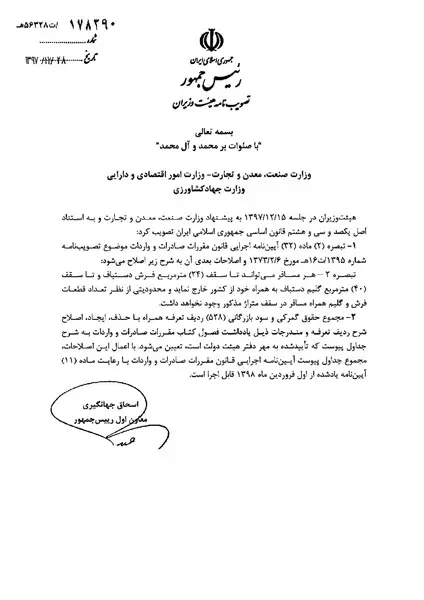 ۱۷۸۲۹۰/ت۵۶۳۲۸هـ
شماره
تاریخ ۱۳۹۷/۱۲/۲۸
جمهوری اسلامی ایران
رئیس جمهور
تصویب نامه هیئت وزیران
بسمه تعالی
"با صلوات بر محمد و آل محمد"
وزارت صنعت، معدن و تجارت- وزارت امور اقتصادی و دارایی
وزارت جهادکشاورزی
هیئت‌وزیران در جلسه ۱۳۹۷/۱۲/۱۵ به پیشنهاد وزارت صنعت، معدن و تجارت و به استناد
اصل یکصد و سی و هشتم قانون اساسی جمهوری اسلامی ایران تصویب کرد:
۱- تبصره (۲) ماده (۳۲) آیین‌نامه اجرایی قانون مقررات صادرات و واردات موضوع تصویب‌نامه
شماره ۱۳۹۵/ت۱۶هـ مورخ ۱۳۷۳/۲/۶ و اصلاحات بعدی آن به شرح زیر اصلاح می‌شود:
تبصره ۲ - هر مسافر می‌تواند تا سقف (۲۴) مترمربع فرش دستباف و تا سقف
(۴۰) مترمربع گلیم دستباف به همراه خود از کشور خارج نماید و محدودیتی از نظر تعداد قطعات
فرش و گلیم همراه مسافر در سقف متراژ مذکور وجود نخواهد داشت.
۲- مجموع حقوق گمرکی و سود بازرگانی (۵۲۸) ردیف تعرفه همراه با حذف، ایجاد، اصلاح
شرح ردیف تعرفه و مندرجات ذیل یادداشت فصول کتاب مقررات صادرات و واردات به شرح
جداول پیوست که تأییدشده به مهر دفتر هیئت دولت است، تعیین می‌شود. با اعمال این اصلاحات،
مجموع جداول پیوست آیین‌نامه اجرایی قانون مقررات صادرات و واردات با رعایت ماده (۱۱)
آیین‌نامه یادشده از اول فروردین ماه ۱۳۹۸ قابل اجرا است.
اسحاق جهانگیری
معاون اول رییس‌جمهور